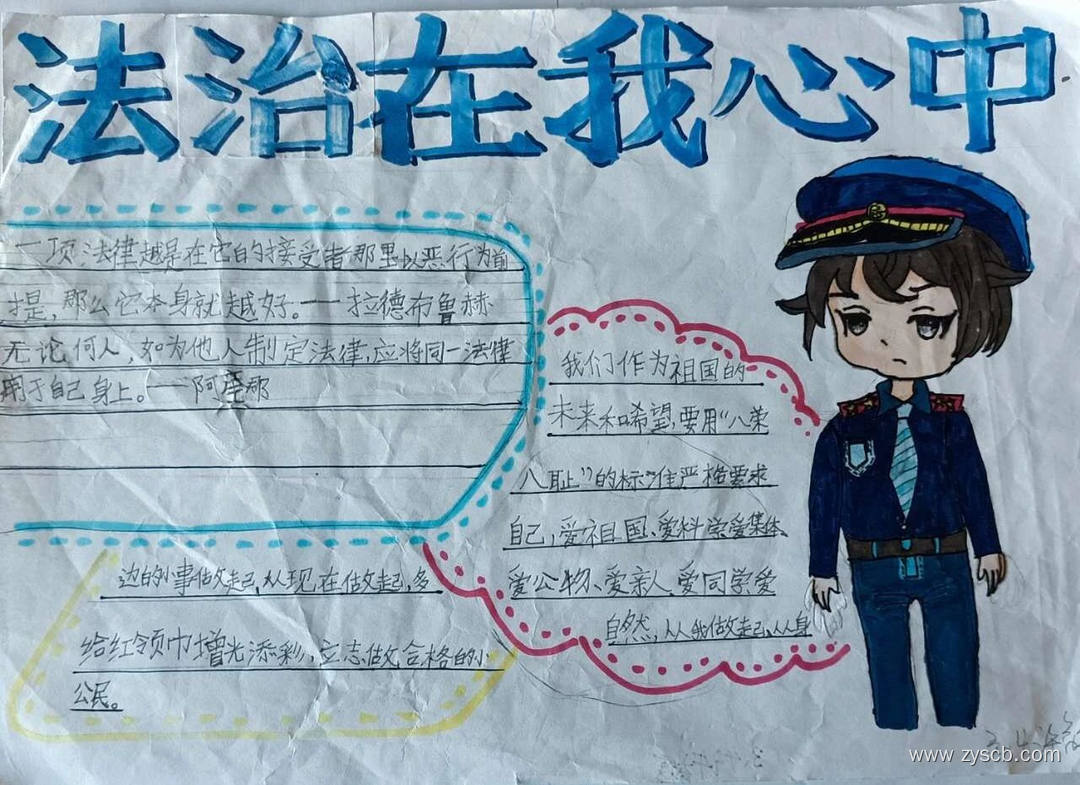 法治在我心中
一项法律越是在它的接受者那里以恶行为前
提,那么它本身就越好。——拉德布鲁赫
无论何人,如为他人制定法律,应将同一法律
用于自己身上。——阿奎那
我们作为祖国的
未来和希望,要用“八荣
八耻”的标准严格要求
自己,爱祖国、爱科学爱集体、
爱公物、爱亲人、爱同学爱
自然,从我做起、从身
边的小事做起、从现在做起,多
给红领巾增光添彩,立志做合格的小
公民。
www.zyscb.com